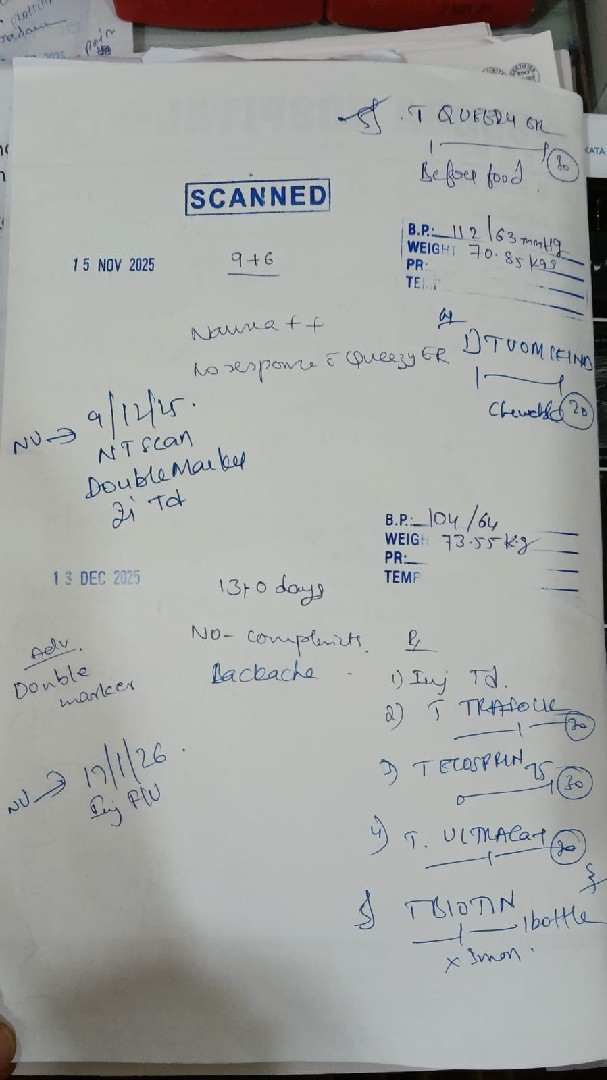 5) T QUEEZY ER
1 1 30
Before food
SCANNED
B.P.: 112/63 mmHg
WEIGHT 70.85 kgs
PR:
15 NOV 2025
9+6
Nausea ++
No response c Queezy ER
1) T VOMIKIND
Chewable 20
NV → 9/12/25.
NT scan
Double Marker
Inj Td
B.P.: 104/64
WEIGH 73.55 kg
PR:
TEMP
13 DEC 2025
13+0 days
NO- complaints.
Backache
Adv.
Double
marker
Rx
1) Inj Td.
2) T
30
3) T ECOSPRIN 75
30
4) T. ULTRACAL
30
5) T BIOTIN
1 bottle
x 3mon.
NV → 17/1/26.
Inj